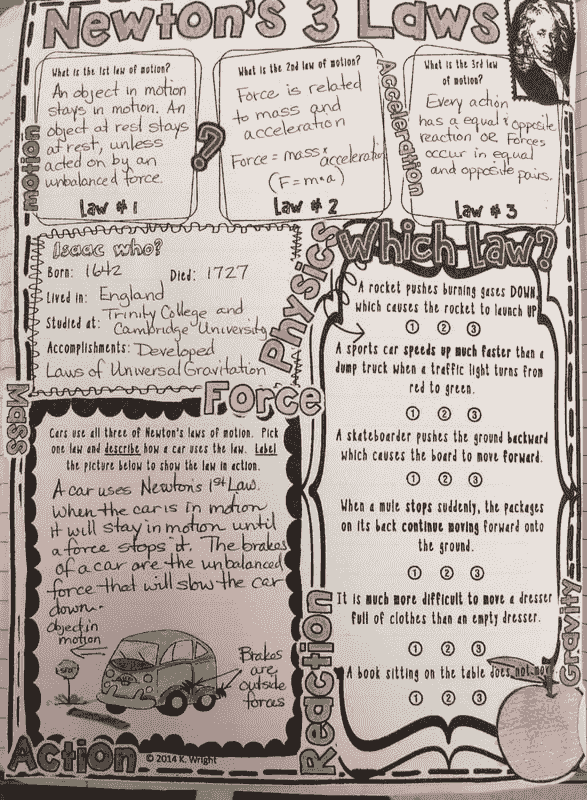 Newton's 3 Laws
What is the 1st law of motion?
An object in motion
stays in motion. An
object at rest stays
at rest, unless
acted on by an
unbalanced force.
Law # 1
motion
?
What is the 2nd law of motion?
Force is related
to mass and
acceleration
Force = mass x acceleration
(F=m•a)
Law # 2
Acceleration
What is the 3rd law
of motion?
Every action
has a equal & opposite
reaction OR Forces
occur in equal
and opposite pairs.
Law # 3
Isaac who?
Born: 1642 Died: 1727
Lived in: England
Studied at: Trinity College and
Cambridge University
Accomplishments: Developed
Laws of Universal Gravitation
Physics
Mass
Force
Cars use all three of Newton's laws of motion. Pick
one law and describe how a car uses the law. Label
the picture below to show the law in action.
A car uses Newton's 1st Law.
When the car is in motion
it will stay in motion until
a force stops it. The brakes
of a car are the unbalanced
force that will slow the car
down.
object in
motion
STOP
Brakes
are
outside
forces
Action
© 2014 K. Wright
Which Law?
A rocket pushes burning gases DOWN
which causes the rocket to launch UP
1 2 3
A sports car speeds up much faster than a
dump truck when a traffic light turns from
red to green.
1 2 3
A skateboarder pushes the ground backward
which causes the board to move forward.
1 2 3
When a mule stops suddenly, the packages
on its back continue moving forward onto
the ground.
1 2 3
It is much more difficult to move a dresser
full of clothes than an empty dresser.
1 2 3
A book sitting on the table does not move
1 2 3
Reaction
Gravity